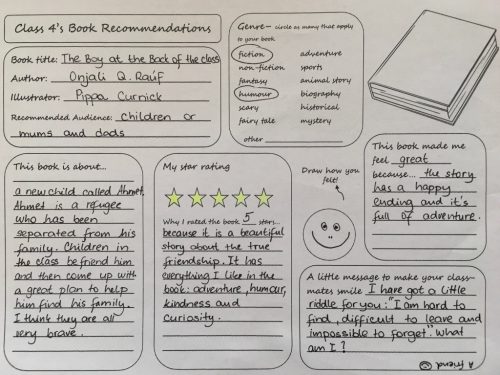 Class 4's Book Recommendations
Book title: The Boy at the Back of the class
Author: Onjali Q. Raúf
Illustrator: Pippa Curnick
Recommended Audience: children or
mums and dads
Genre- circle as many that apply
to your book
fiction adventure
non-fiction sports
fantasy animal story
humour biography
scary historical
fairy tale mystery
other
This book is about...
a new child called Ahmet.
Ahmet is a refugee
who has been
separated from his
family. Children in
the class befriend him
and then come up with
a great plan to help
him find his family.
I think they are all
very brave.
My star rating
Why I rated the book 5 stars...
because it is a beautiful
story about the true
friendship. It has
everything I like in the
book: adventure, humour,
kindness and
curiosity.
Draw how you
felt!
This book made me
feel great
because... the story
has a happy
ending and it's
full of adventure.
A little message to make your class-
mates smile I have got a little
riddle for you: "I am hard to
find, difficult to leave and
impossible to forget". What
am I?
A friend